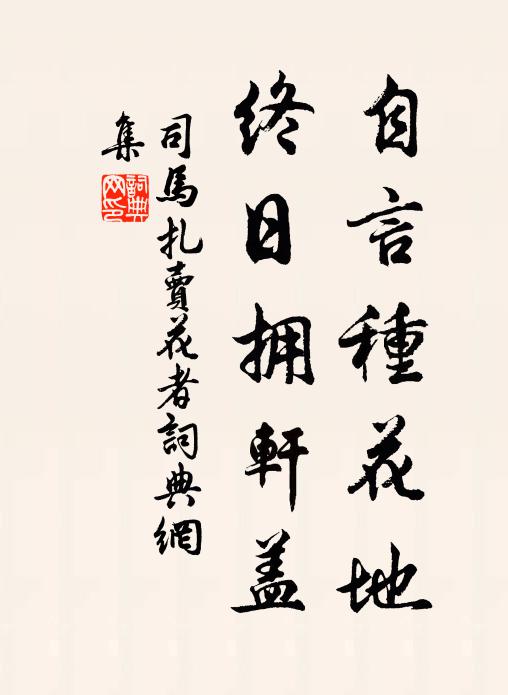 自言種花地
終日拥軒盖
司馬扎賣花者詞典網
集
詞典
网印